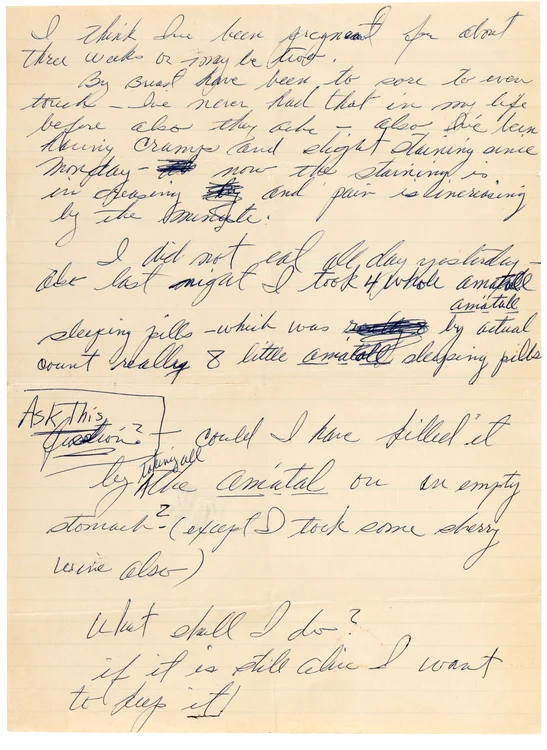 I think I've been pregnant for about
three weeks or may be two.
By Breast have been to sore to even
touch – I've never had that in my life
before also they ache – also I've been
having cramps and slight staining since
Monday – now the staining is
increasing and pain is increasing
by the minute.
I did not eat all day yesterday –
also last night I took 4 whole amatall
amatall
sleeping pills – which was by actual
count really 8 little amatall sleeping pills
Ask This
Question? – could I have killed it
by taking all the amatal on an empty
stomach? (except I took some sherry
wine also)
What shall I do?
if it is still alive I want
to keep it!